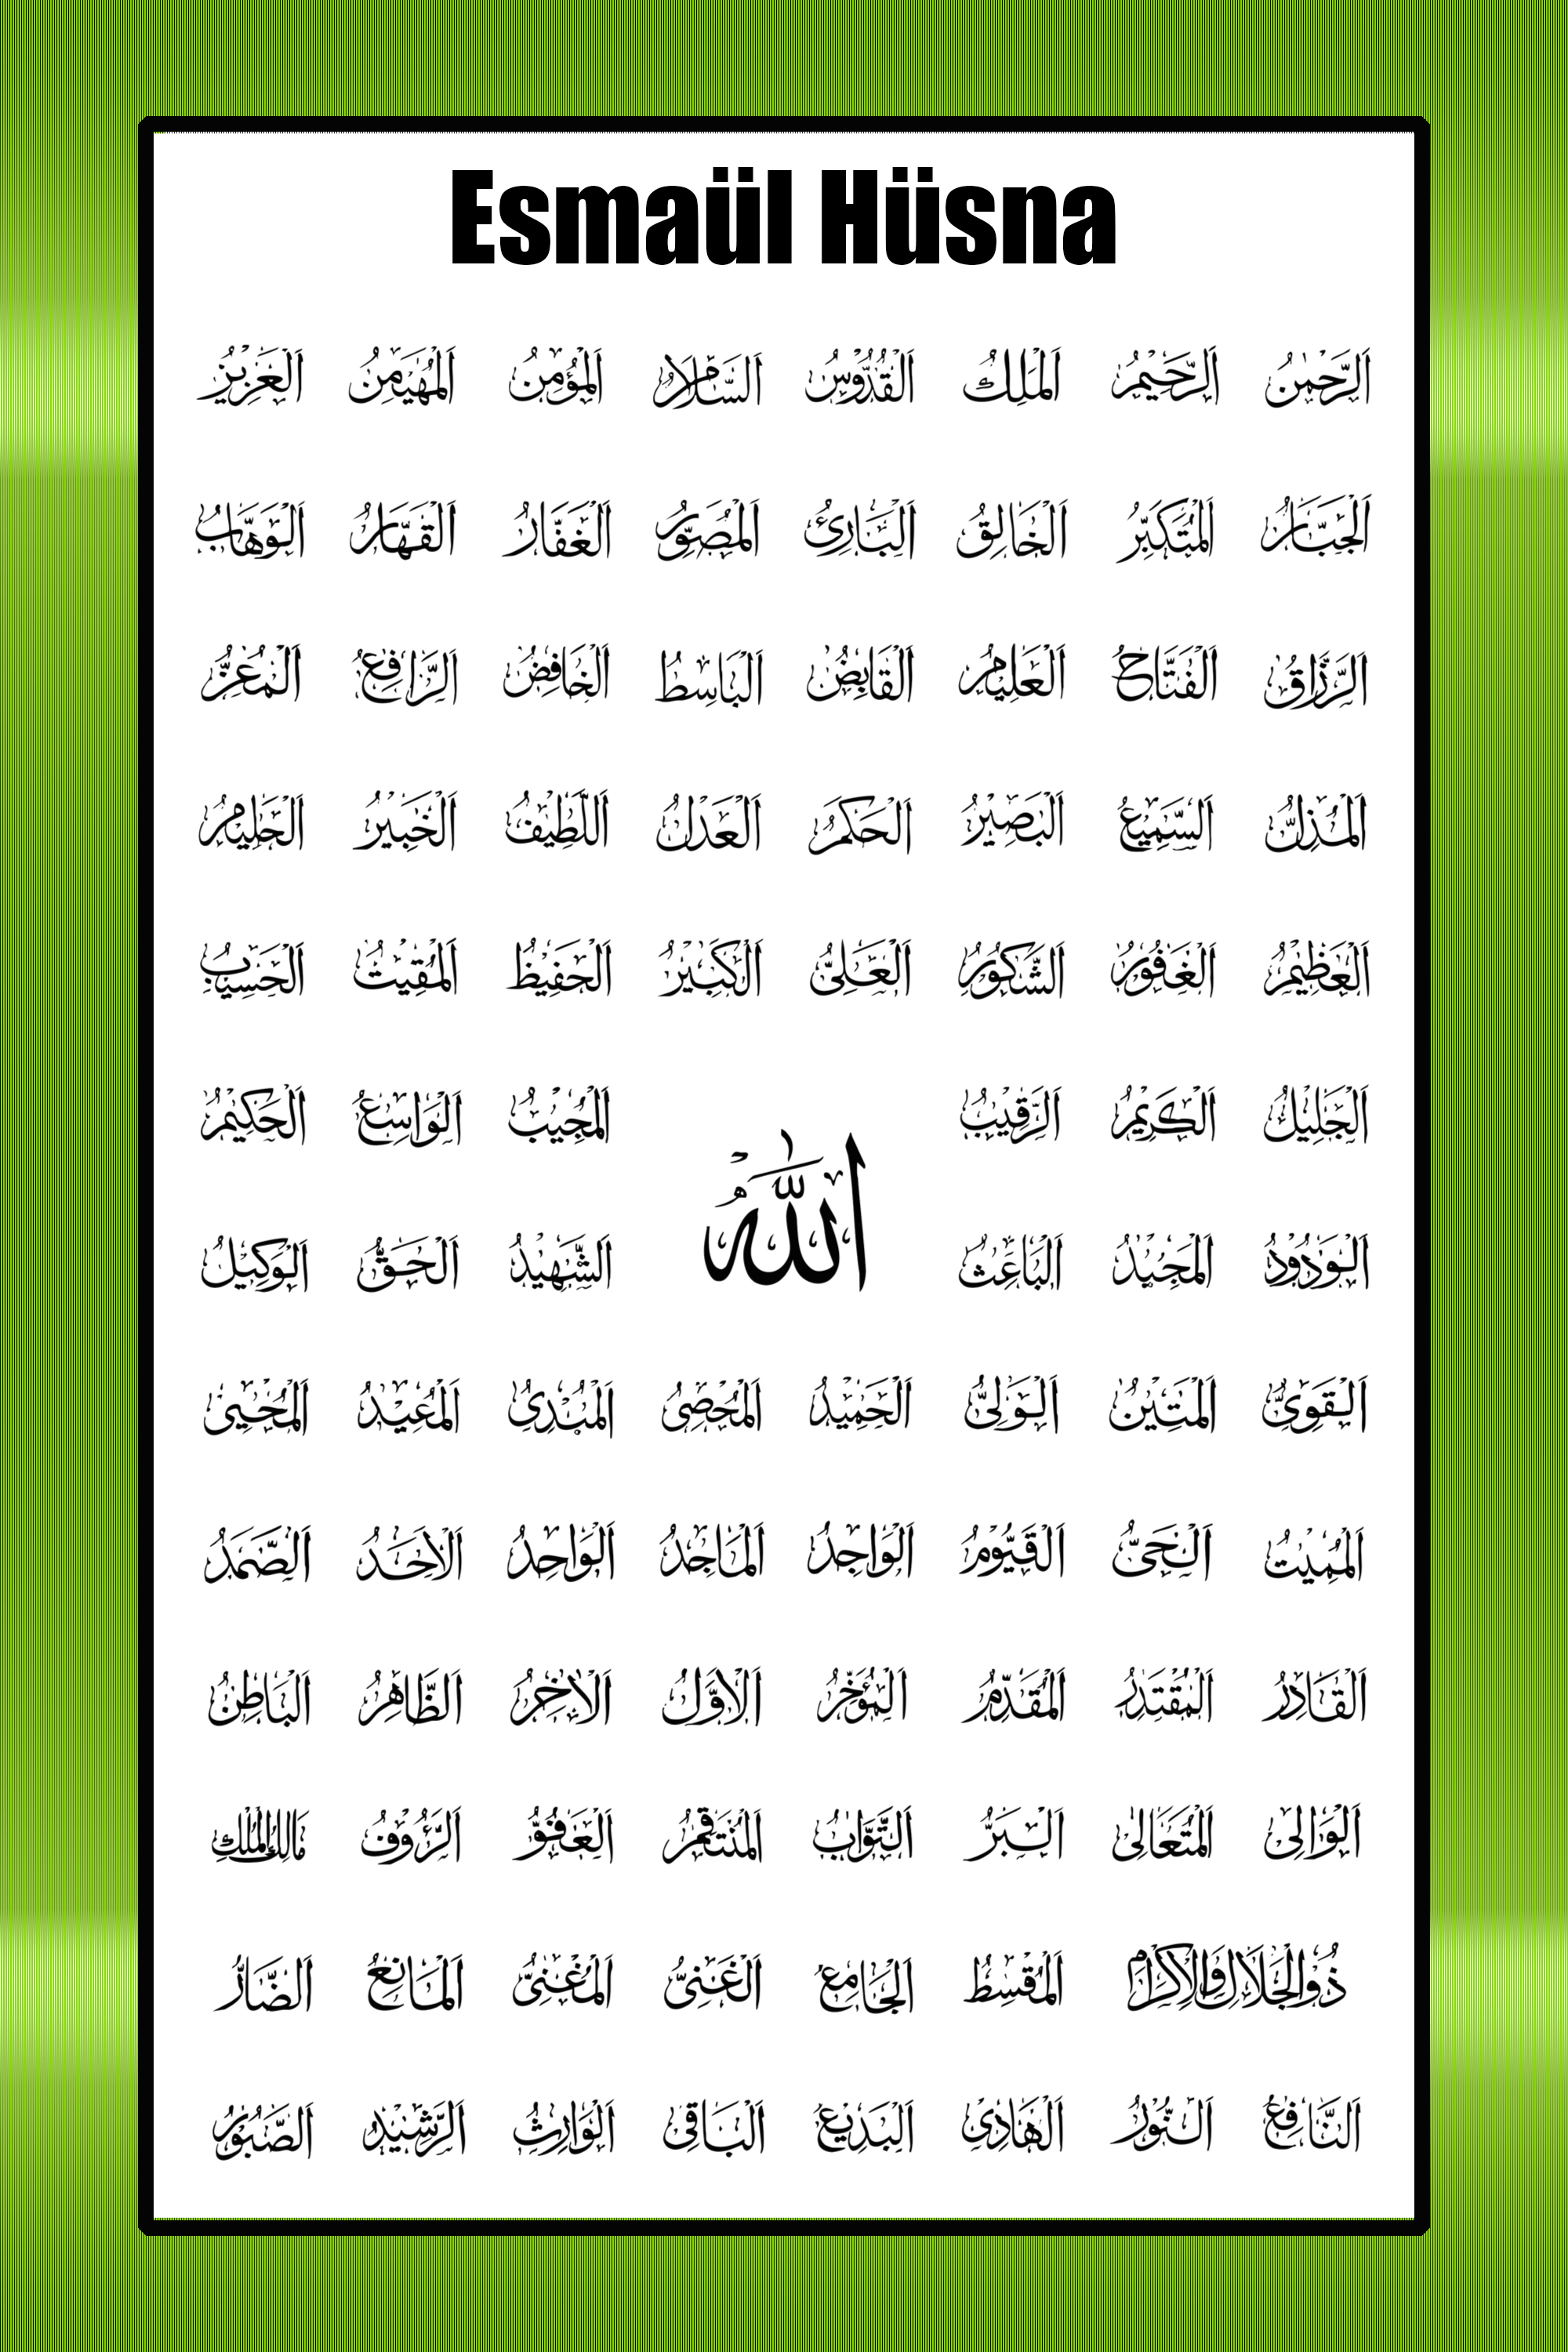 Esmaül Hüsna
اَلرَّحْمٰنُ اَلرَّحٖيمُ اَلْمَلِكُ اَلْقُدُّوسُ اَلسَّلَامُ اَلْمُؤْمِنُ اَلْمُهَيْمِنُ اَلْعَزِيزُ
اَلْجَبَّارُ اَلْمُتَكَبِّرُ اَلْخَالِقُ اَلْبَارِئُ اَلْمُصَوِّرُ اَلْغَفَّارُ اَلْقَهَّارُ اَلْوَهَّابُ
اَلرَّزَّاقُ اَلْفَتَّاحُ اَلْعَلِيمُ اَلْقَابِضُ اَلْبَاسِطُ اَلْخَافِضُ اَلرَّافِعُ اَلْمُعِزُّ
اَلْمُذِلُّ اَلسَّمِيعُ اَلْبَصِيرُ اَلْحَكَمُ اَلْعَدْلُ اَللَّطِيفُ اَلْخَبِيرُ اَلْحَلِيمُ
اَلْعَظِيمُ اَلْغَفُورُ اَلشَّكُورُ اَلْعَلِىُّ اَلْكَبِيرُ اَلْحَفِيظُ اَلْمُقِيتُ اَلْحَسِيبُ
اَلْجَلِيلُ اَلْكَرِيمُ اَلرَّقِيبُ اَلْمُجِيبُ اَلْوَاسِعُ اَلْحَكِيمُ
اَللّٰهُ
اَلْوَدُودُ اَلْمَجِيدُ اَلْبَاعِثُ اَلشَّهِيدُ اَلْحَقُّ اَلْوَكِيلُ
اَلْقَوِىُّ اَلْمَتِينُ اَلْوَلِىُّ اَلْحَمِيدُ اَلْمُحْصِى اَلْمُبْدِئُ اَلْمُعِيدُ اَلْمُحْيِى
اَلْمُمِيتُ اَلْحَىُّ اَلْقَيُّومُ اَلْوَاجِدُ اَلْمَاجِدُ اَلْوَاحِدُ اَلْاَحَدُ اَلصَّمَدُ
اَلْقَادِرُ اَلْمُقْتَدِرُ اَلْمُقَدِّمُ اَلْمُؤَخِّرُ اَلْاَوَّلُ اَلْاٰخِرُ اَلظَّاهِرُ اَلْبَاطِنُ
اَلْوَالِى اَلْمُتَعَالِى اَلْبَرُّ اَلتَّوَّابُ اَلْمُنْتَقِمُ اَلْعَفُوُّ اَلرَّؤُوفُ مَالِكُ الْمُلْكِ
ذُو الْجَلَالِ وَالْاِكْرَامِ اَلْمُقْسِطُ اَلْجَامِعُ اَلْغَنِىُّ اَلْمُغْنِى اَلْمَانِعُ اَلضَّارُّ
اَلنَّافِعُ اَلنُّورُ اَلْهَادِى اَلْبَدِيعُ اَلْبَاقِى اَلْوَارِثُ اَلرَّشِيدُ اَلصَّبُورُ